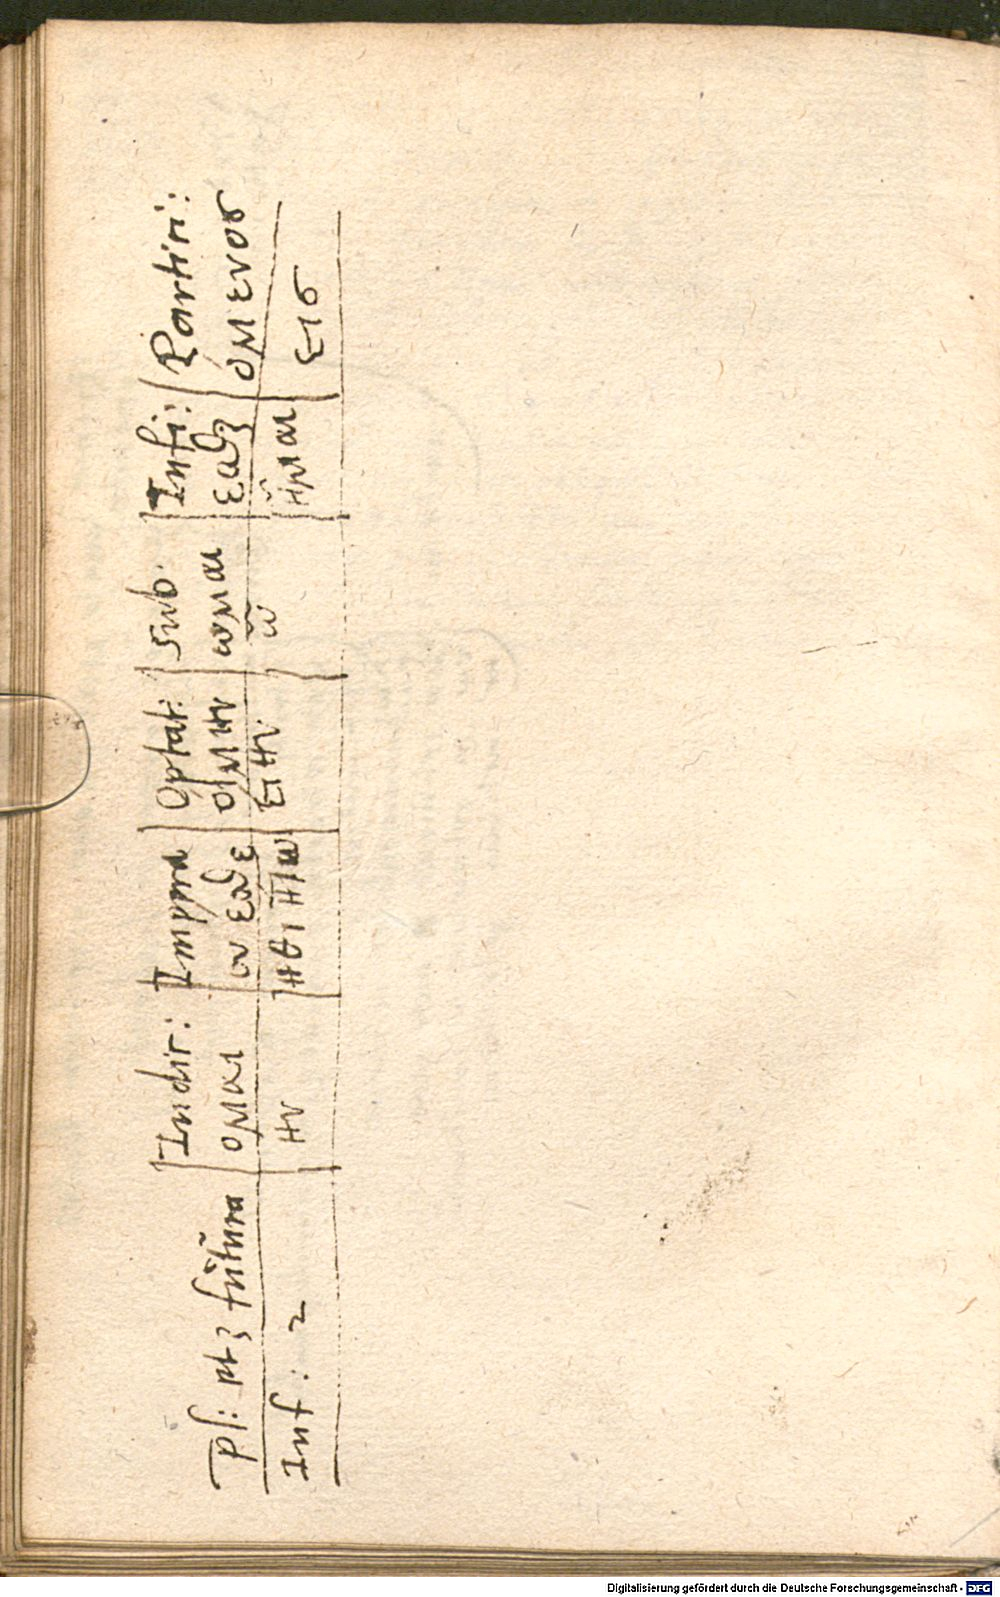 Indic: Impera Optat: sub. Infi: Partici:
ps: et 3 futura ομαι ου εσθε οιμην ωμαι εσθ όμενοσ
Inf: 2 ην ηθι ητω ειην ῶ ῆναι εισ
Digitalisierung gefördert durch die Deutsche Forschungsgemeinschaft - DFG